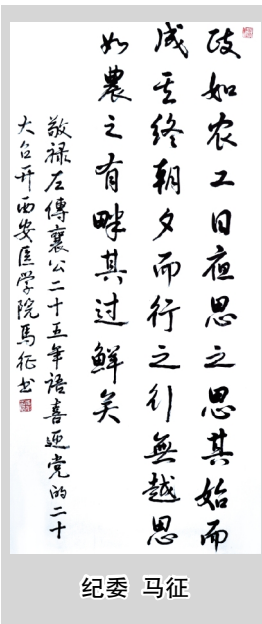 政如农工日夜思之思其始而
成其终朝夕而行之行無越思
如農之有畔其过鮮矣
敬禄左傳襄公二十五年语喜迎党的二十
大召开西安医学院馬征书
纪委 马征